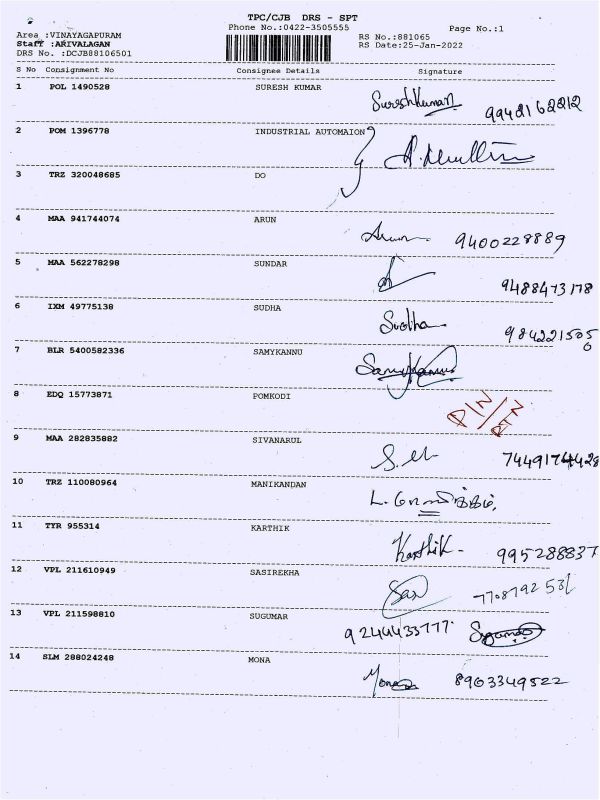 TPC/CJB DRS - SPT
Phone No.:0422-3505555
Page No.:1
Area :VINAYAGAPURAM
RS No.:881065
Staff :ARIVALAGAN
RS Date:25-Jan-2022
DRS No. :DCJB88106501
S No Consignment No Consignee Details Signature
1 POL 1490528 SURESH KUMAR Sureshkumar 9942162212
2 POM 1396778 INDUSTRIAL AUTOMAION
3 TRZ 320048685 DO
4 MAA 941744074 ARUN Arun 9400228889
5 MAA 562278298 SUNDAR 9488473178
6 IXM 49775138 SUDHA Sudha 9842215050
7 BLR 5400582336 SAMYKANNU Samykannu
8 EDQ 15773871 POMKODI
9 MAA 282835882 SIVANARUL 7449174428
10 TRZ 110080964 MANIKANDAN
11 TYR 955314 KARTHIK Karthik- 995288837
12 VPL 211610949 SASIREKHA Sasi 7708792531
13 VPL 211598810 SUGUMAR 9244433777. Sugumar
14 SLM 288024248 MONA Mona 8903349522